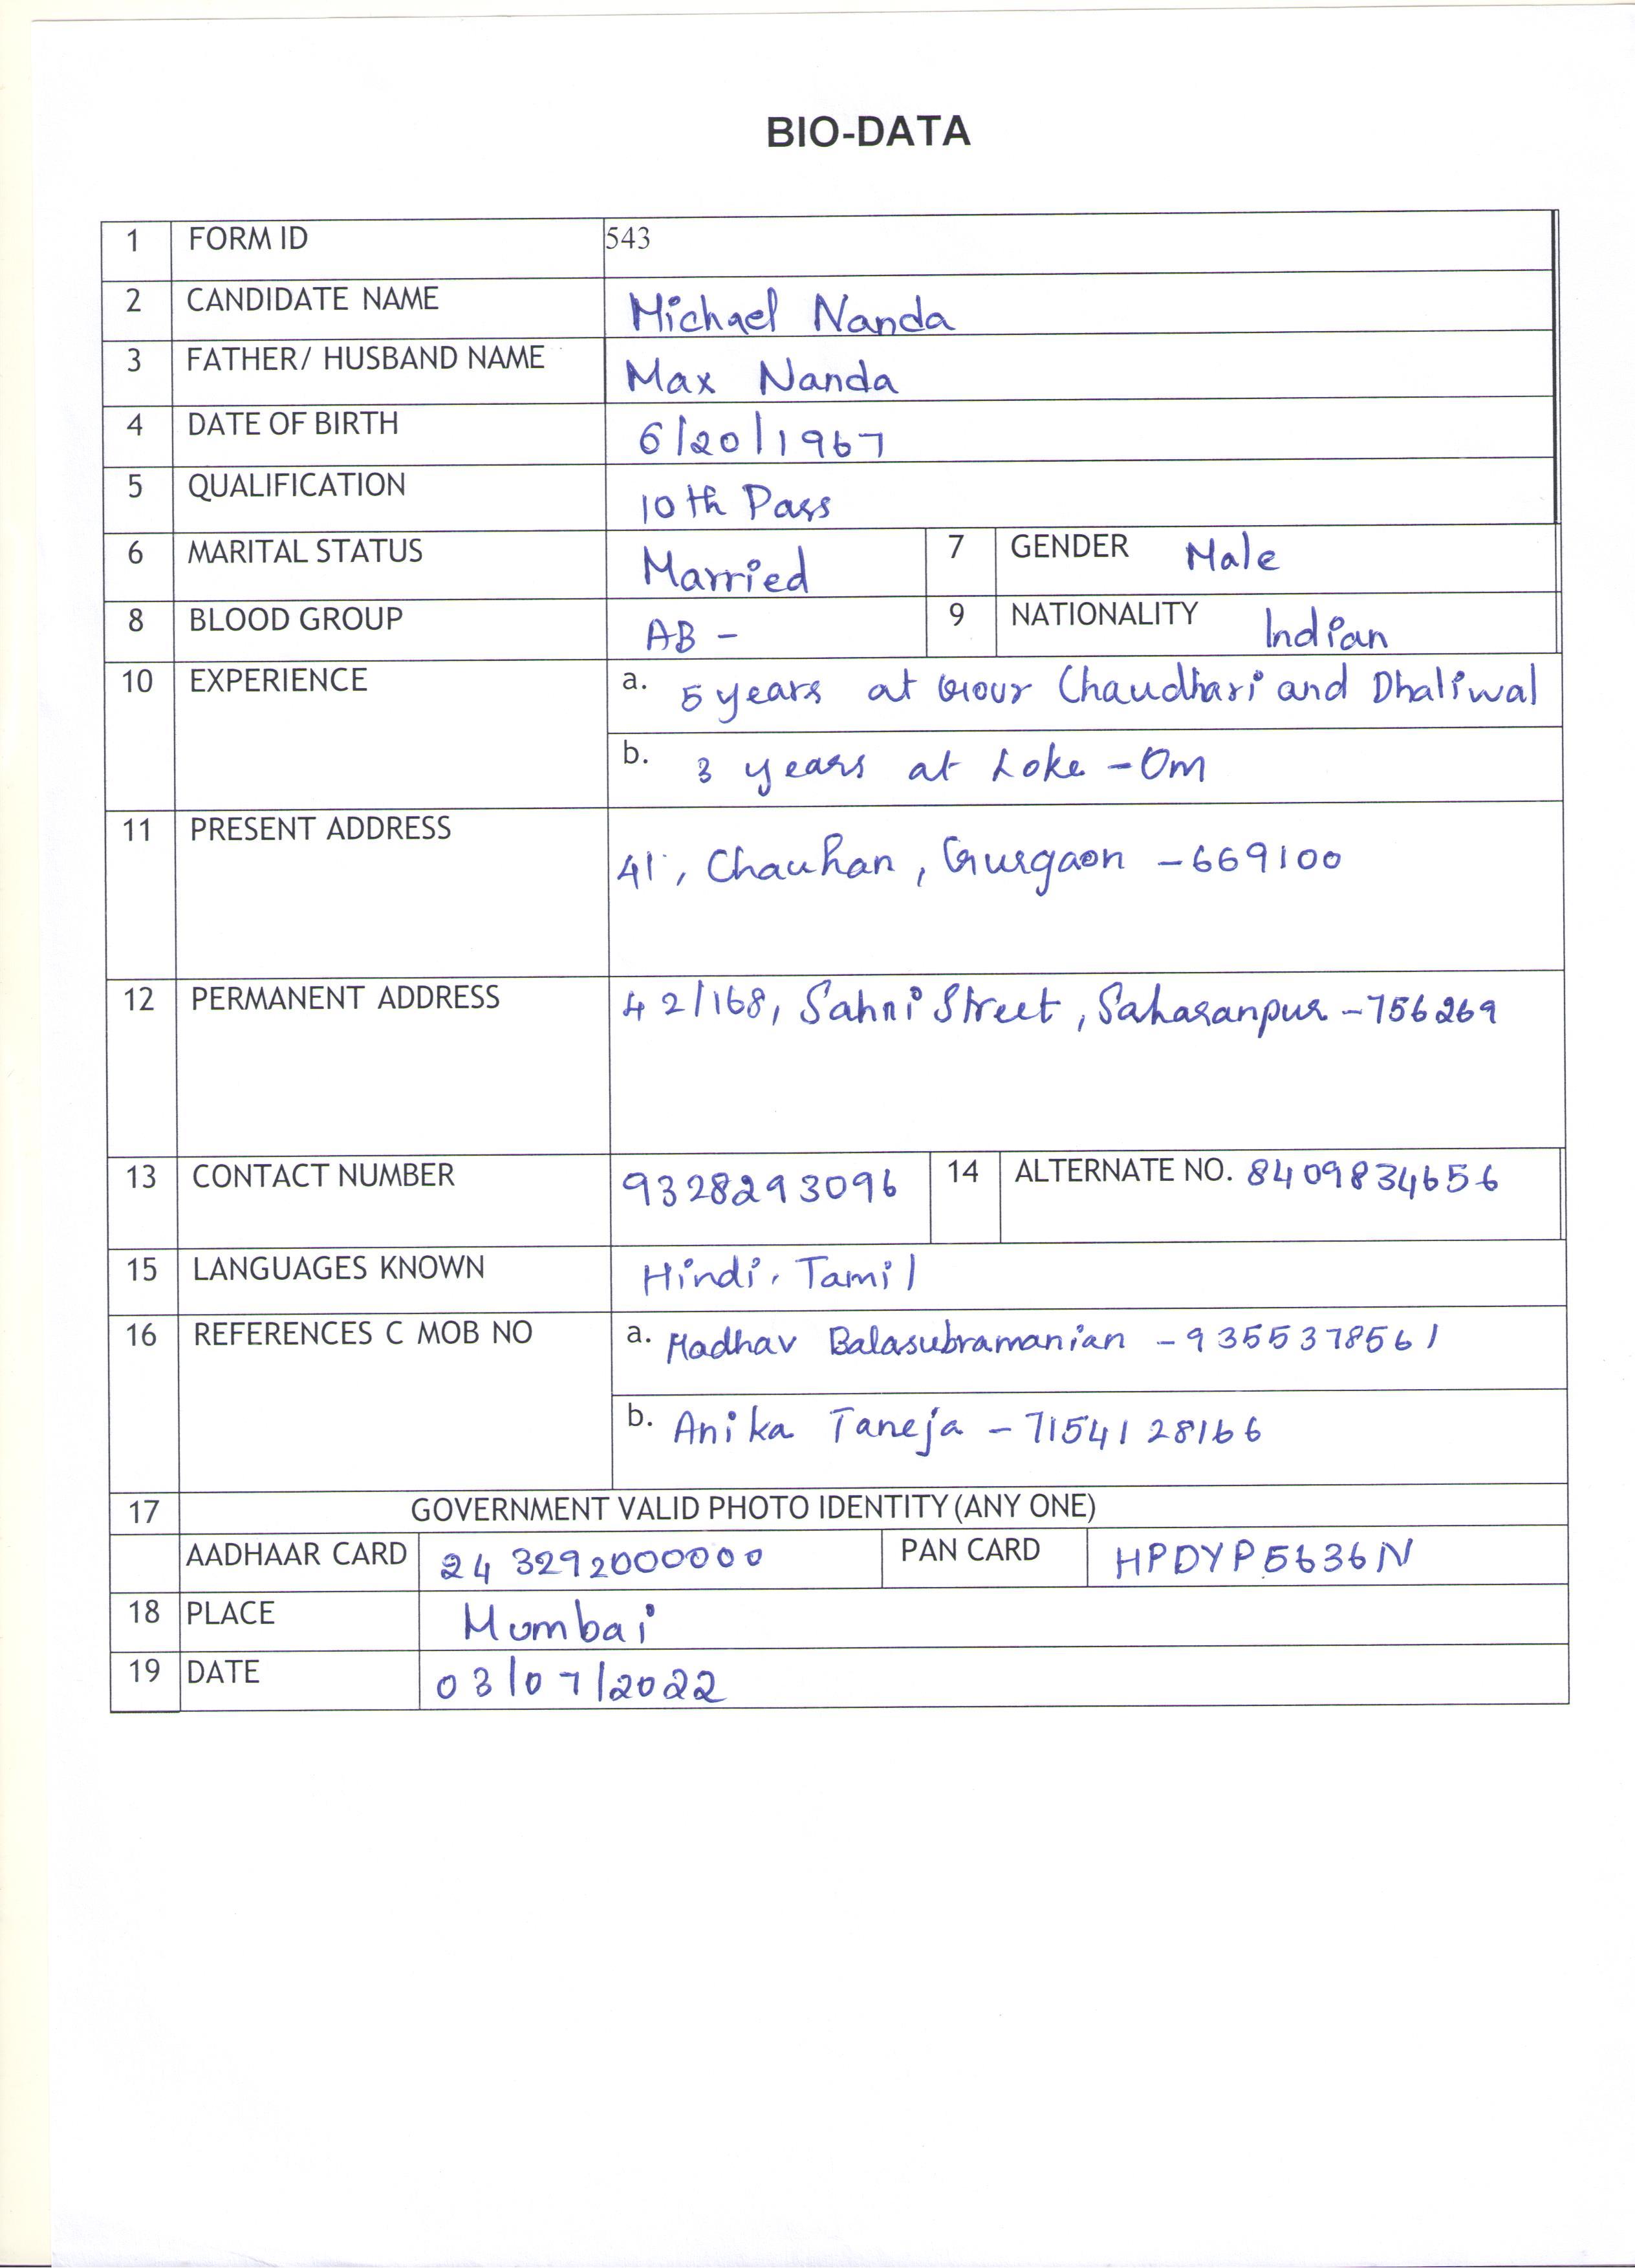 BIO-DATA
1 FORM ID 543
2 CANDIDATE NAME Michael Nanda
3 FATHER/ HUSBAND NAME Max Nanda
4 DATE OF BIRTH 6/20/1967
5 QUALIFICATION 10th Pass
6 MARITAL STATUS Married 7 GENDER Male
8 BLOOD GROUP AB - 9 NATIONALITY Indian
10 EXPERIENCE a. 5 years at Gour Chaudhari and Dhaliwal
b. 3 years at Loke - Om
11 PRESENT ADDRESS 41, Chauhan, Gurgaon - 669100
12 PERMANENT ADDRESS 42/168, Sahni Street, Saharanpur - 756269
13 CONTACT NUMBER 9328293096 14 ALTERNATE NO. 8409834656
15 LANGUAGES KNOWN Hindi, Tamil
16 REFERENCES C MOB NO a. Madhav Balasubramanian - 9355378561
b. Anika Taneja - 7154128166
17 GOVERNMENT VALID PHOTO IDENTITY (ANY ONE)
AADHAAR CARD 243292000000 PAN CARD HPDYP5636N
18 PLACE Mumbai
19 DATE 03/07/2022